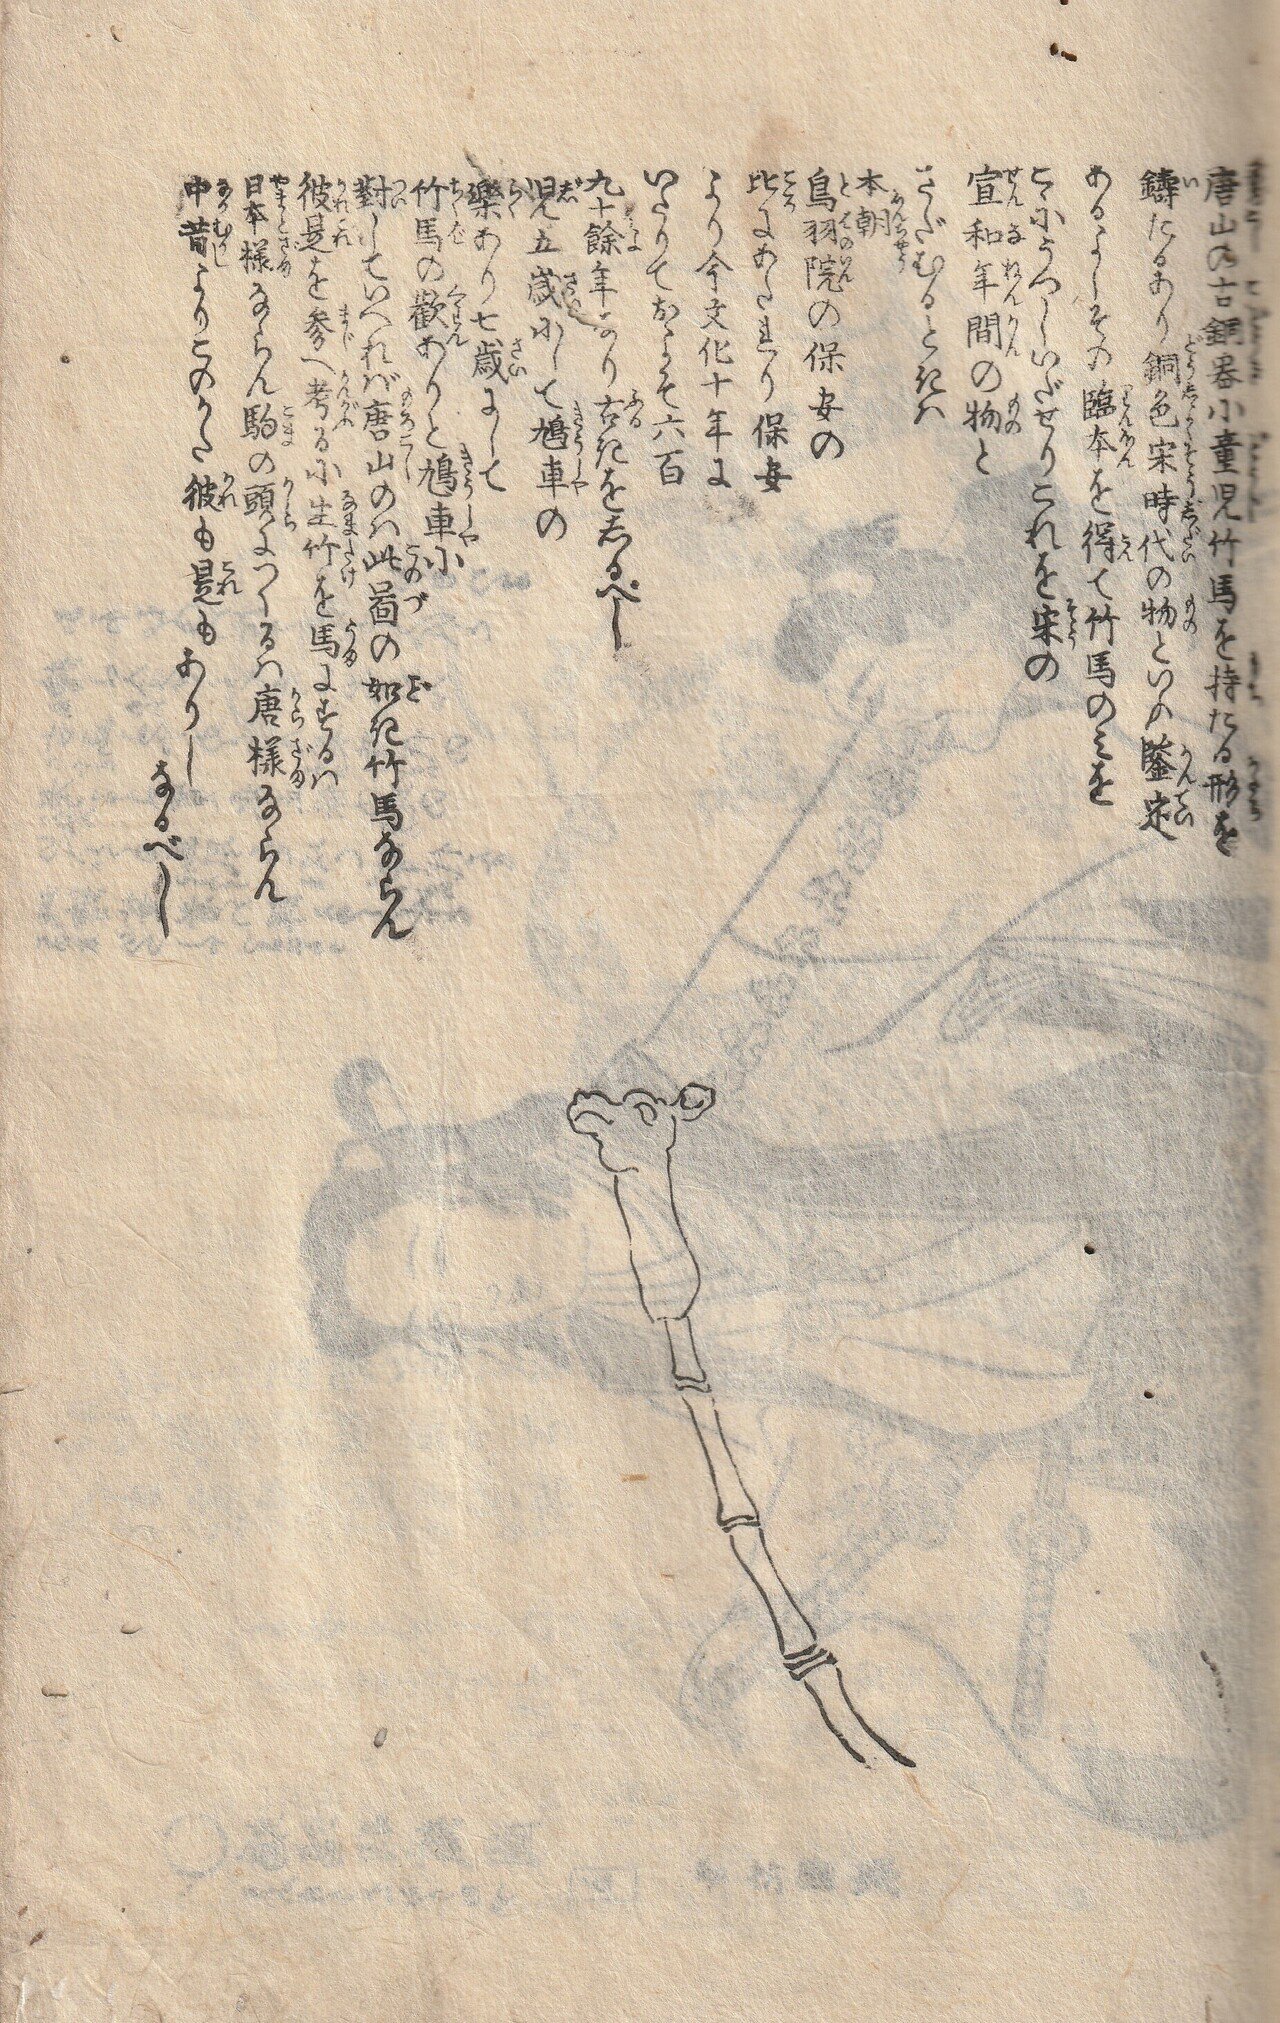 唐山の古銅器小童児竹馬を持たる形を
鋳たるあり銅色宋時代の物といふ鑒定
あるよしその臨本を得て竹馬のみを
こゝにうつしいだせりこれを宋の
宣和年間の物と
さだむるときハ
本朝
鳥羽院の保安の
比にあたれり保安
より今文化十年に
いたりておよそ六百
九十餘年なり古きをしるべし
児五歳にして鳩車の
樂あり七歳にして
竹馬の歡ありと鳩車に
對していへれバ唐山のハ此啚の如き竹馬ならん
彼是を参へ考るに生竹を馬にするハ
日本様ならん駒の頭につくるハ唐様ならん
中昔よりこのかた彼も是もありし
なるべし